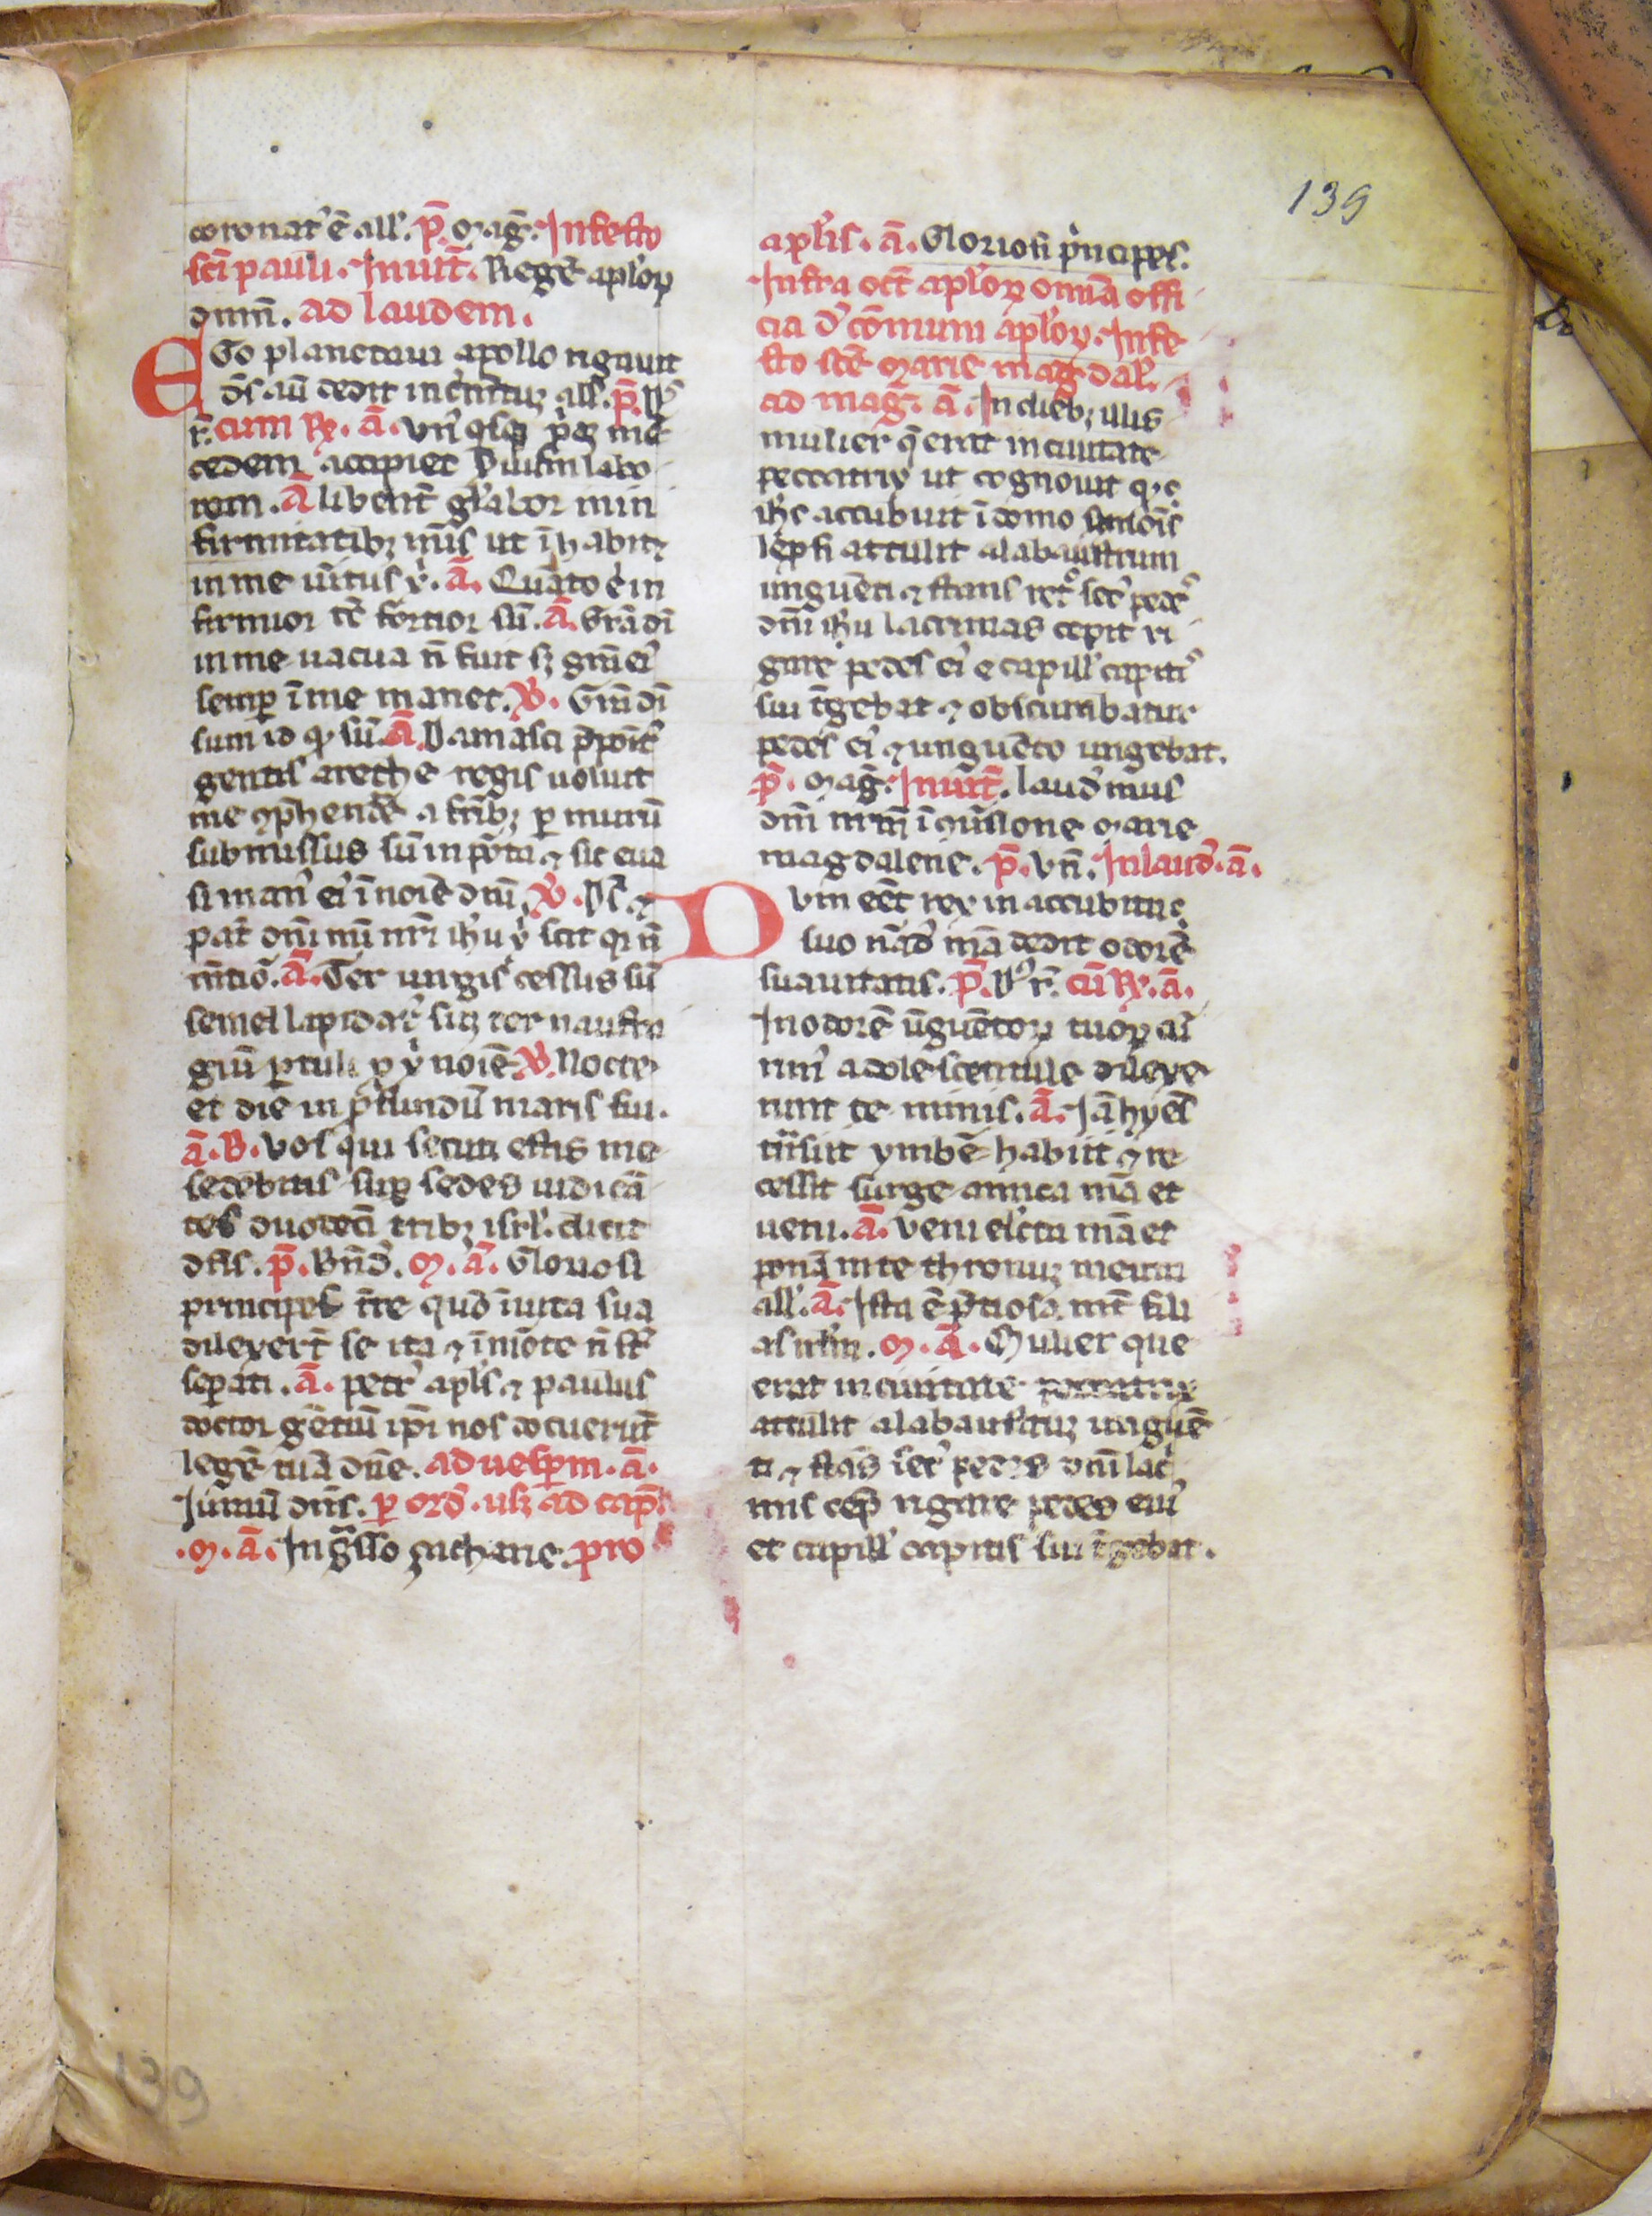 139
coronat᷒ ē all᷒. p̄. Maḡ. In festo
sci᷒ pauli. Inuit̄. Regē aplo᷒ꝝ
dnm̄. ad laudem.
EGo plantaui apollo rigauit
ds̄ aū dedit incrementū all᷒. p̄. Ds̄
r̄. cum Rꝫ. ā. Vn᷒ qsqꝫ ꝓꝫ me
cedem accipiet suum labo
rem. ā libent᷒ gl᷒abor in in
firmitatibꝫ meis ut īhabitꝫ
in me uirtus x᷒. ā. Quāto ē in
firmior tc̄ fortior sū. ā. Grā di᷒
in me uacua n̄ fuit sꝫ grā ei᷒
semꝑ ī me manet. V. Grā di᷒
sum id qd sū. ā. Damasci p̄posit᷒
gentis arethe regis uoluit
me ꝯp̄hendē a frībꝫ ꝑ murū
submissus sū in sporta ⁊ sic eua
si man᷒ ei᷒ ī noīe dnī. V. Ds̄ ⁊
pat᷒ dnī nr̄i ih᷒u x᷒ scit qꝛ n̄
mētior. ā. Ter uirgis cessus sū
semel lapidat᷒ sū ter naufra
giū ꝑtuli ꝓ x᷒ noīe V. Nocte
et die in ꝓfundū maris fui.
ā. B. Vos qui secuti estis me
sedebitis suꝑ sedes iudicā
tes duodecī tribꝫ isrl᷒. dicit
dn̄s. p̄. Bn̄d᷒. M. ā. Gloriosi
principes tr̄e quō ī uita sua
dilexer̄t se ita ⁊ ī morte n̄ st᷒
seꝑati. ā. petr᷒ apl᷒s ⁊ paulus
doctor gētiū ip̄i nos docuerūt
legē tuā dn̄e. ad uesꝑm. ā.
Iurauit dn̄s. ꝑ ord᷒. usꝫ ad cap̄.
.M. ā. Ingressio zacharie pro
apl᷒is. ā. Gloriosi p᷒ncipes.
Infra oct᷒ aplo᷒ꝝ omīa offi
cia d᷒ cōmuni aplo᷒ꝝ. In fe
sto sce᷒ Marie magdal᷒.
ad maḡ. ā. In diebꝫ illis
mulier q̄ erat in ciuitate
peccatrix ut cognouit qd
ih᷒c accubuit ī domo simōis
leprosi attulit alabaustrum
ungūeti ⁊ stans ret᷒ sec᷒ pedes
dnī ih᷒u lacrimas cepit ri
gare pedes ei᷒ e capill᷒ capit᷒
sui t᷒gebat ⁊ obsculabatur
pedes ei᷒ ⁊ unguēto ungebat.
p̄. Maḡ. Inuit̄. laudemus
dnm̄ nr̄m ī ꝯuersione Marie
magdalene. p̄. Vn̄. In laud᷒. ā.
DVm eēt rex in accubitu
suo nard᷒ mā dedit odorē
suauitatis. p̄. Ds̄ r̄. cū Rꝫ. ā.
In odorē ūguētoꝝ tuoꝝ cur
rim᷒ adolescentule dilexe
runt te nimis. ā. Iā hyēs
trāsiit ymber habiit ⁊ re
cessit surge amica mā et
ueni. ā. Veni electa mā et
ponā in te thronuꝫ meum
all᷒. ā. Ista ē sp̄tiosa int᷒ fili
as irl᷒m. M. ā. Mulier que
erat in ciuitate peccatrix
attulit alabaustruꝫ unguē
ti ⁊ stās sec᷒ pedes dnī lac᷒
mis cep᷒ rigare pedes eius
et capill᷒ capitis sui t᷒gebat.
139